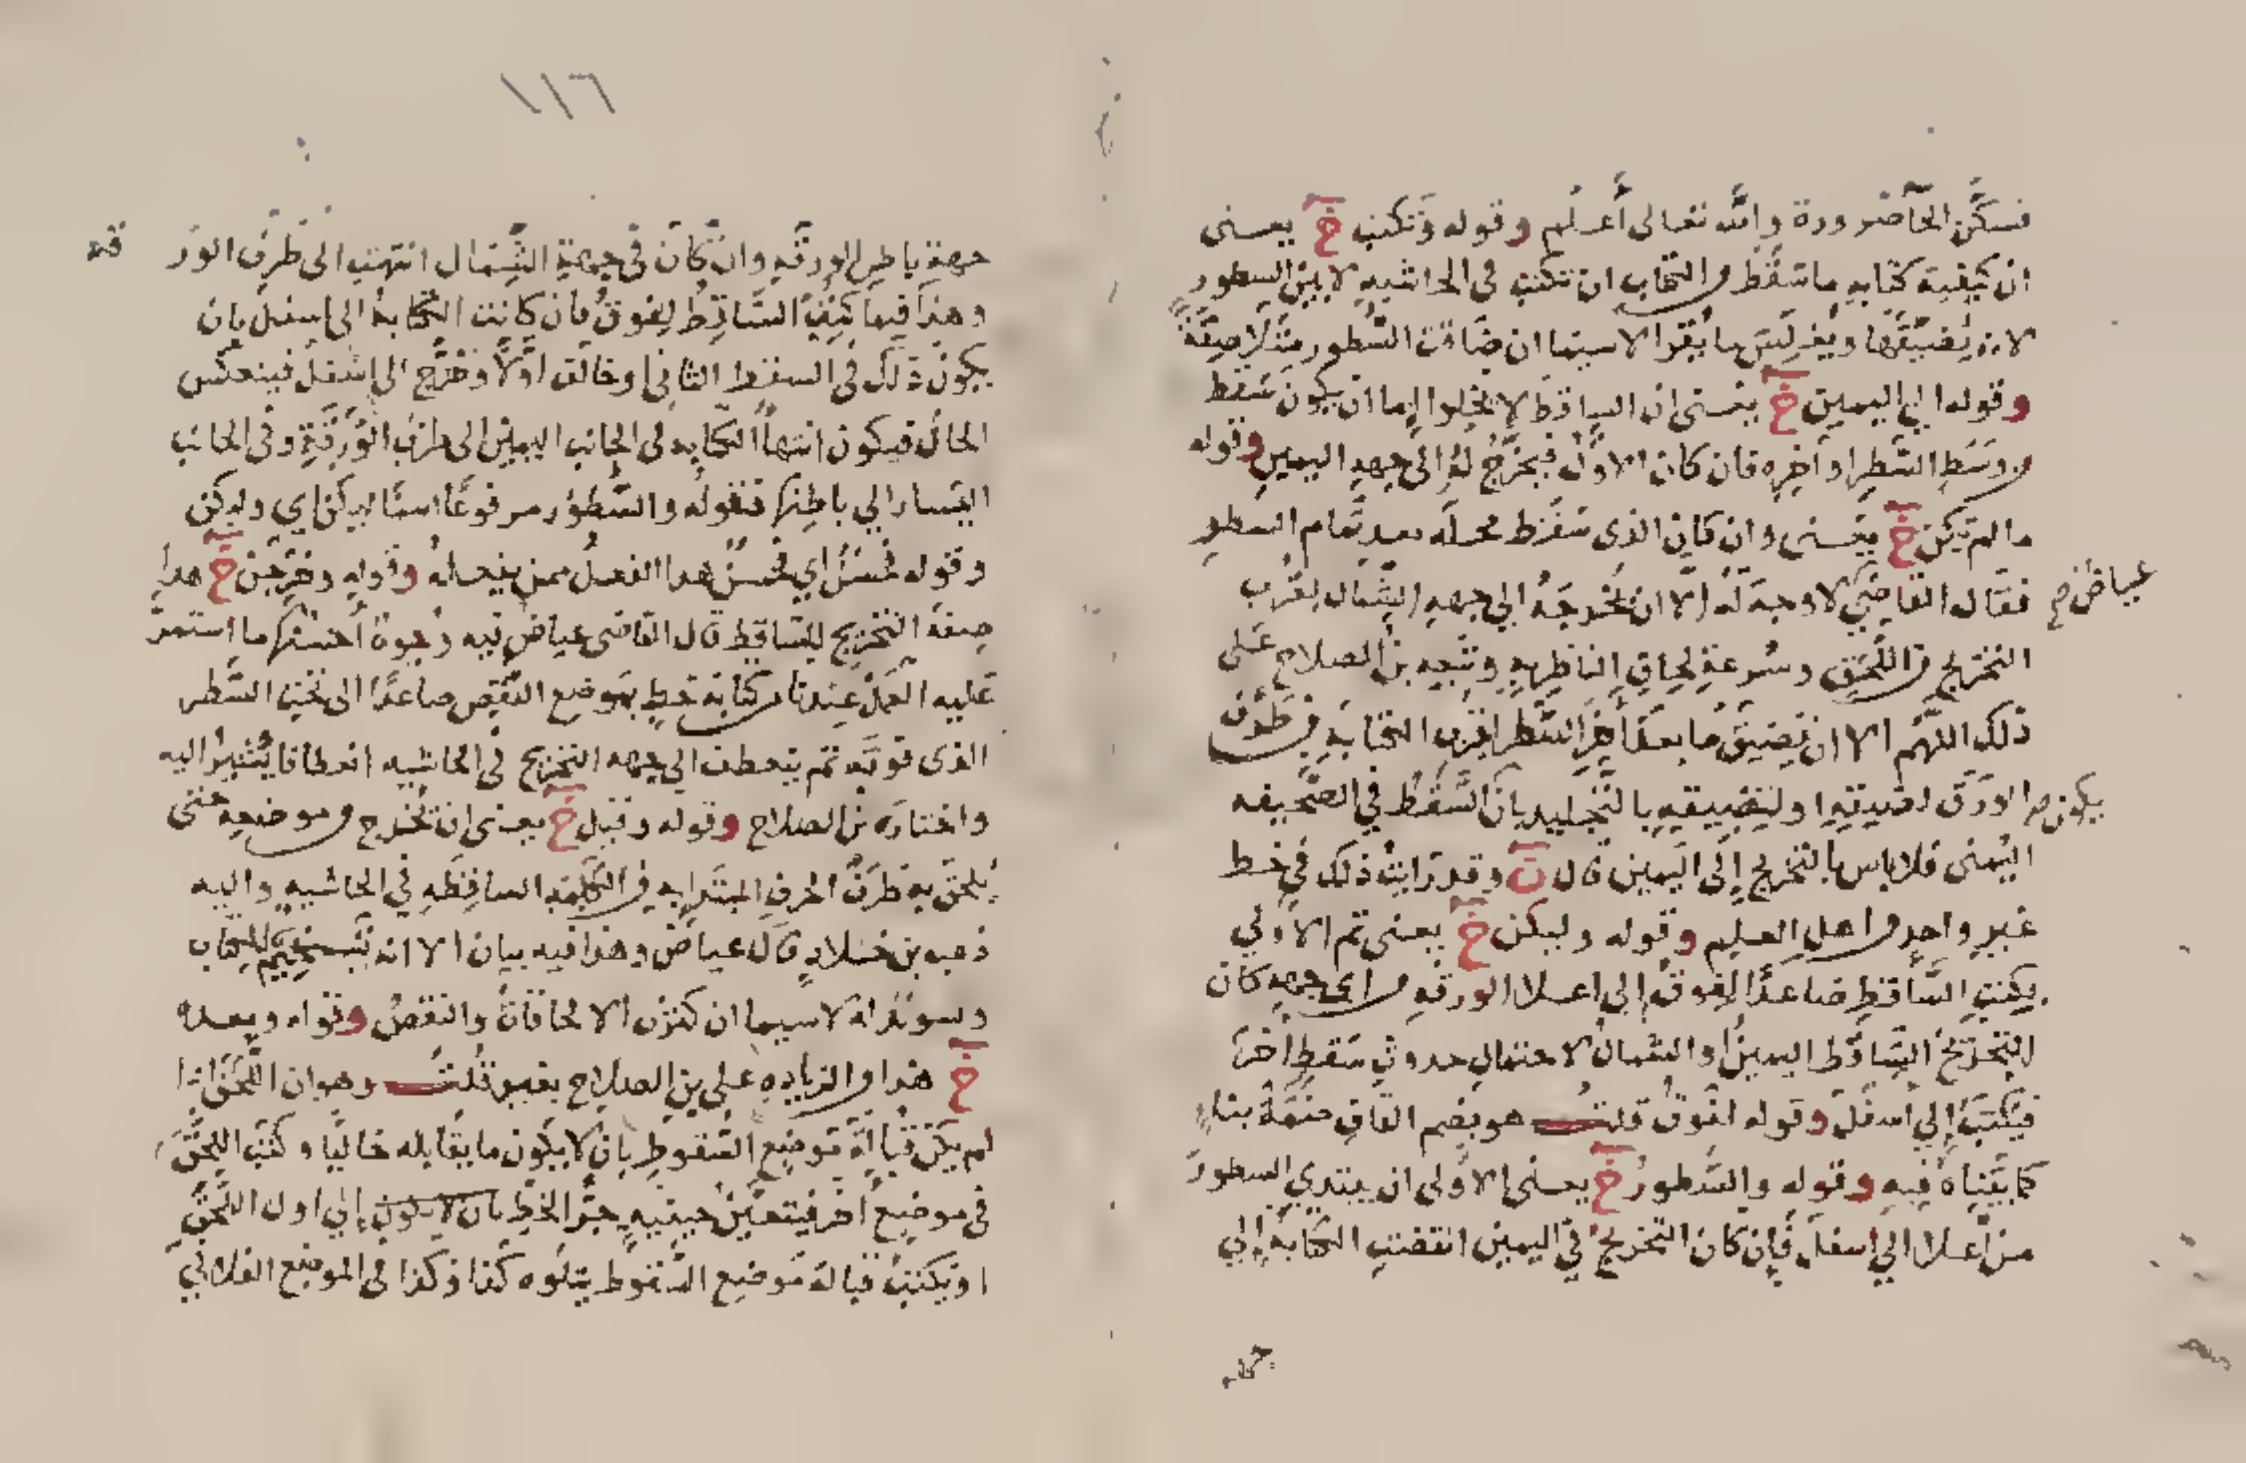 فسكن الحا ضرورة والله تعالى أعلم وقوله وتكتب خ يعني
ان كيفية كتابه ما سقط من الكتاب ان تكتب في الحاشيه لا بين السطور
لانه يضيقها ويغلس ما يقرا لاسيما ان ضاقت السطور متلاصقة
وقوله الي اليمين خ يعني ان الساقط لا يخلوا اما ان يكون سقط
من وسط السطر او آخره فان كان الاول فيخرج له الى جهه اليمين وقوله
ما لم يكن خ يعني وان كان الذي سقط محله بعد تمام السطر
فقال القاضي لا وجه له الا ان يخرجه الي جهه الشمال لقرب
عياض صح
التخريج من اللحق وسرعة لحاق الناظر به وتبعه بن الصلاح على
ذلك اللهم الا ان تضيق ما بعد آخر السطر لقرب الكتابه من طرف
الورق لضيقه او لتضيقه بالتجليد بان السقط في الصحيفه
يكون صح
اليمنى فلا باس بالتخريج إلى اليمين قال ن وقد رايت ذلك في خط
غير واحد من اهل العلم وقوله وليكن خ يعني ثم الاولي
يكتب الساقط صاعدا لفوق إلي اعلا الورقه من اي جهه كان
التخريج الساقط اليمين او الشمال لاحتمال حدوث سقط آخر
فيكتب إلي أسفل وقوله لفوق قلت هو بضم القاف ضمة بناء
كما بيناه فيه وقوله والسطور خ يعني الاولى ان يبتدي السطور
من اعلا الي اسفل فإن كان التخريج في اليمين انقضت الكتابة إلي
جهة
١١٦
جهة باطن الورقه وان كان في جهة الشمال انتهت الى طرف الور قه
وهذا فيما كتب الساقط لفوق فان كانت الكتابة الى اسفل بان
يكون ذلك في السقط الثاني او خالف اولا وخرج الى اسفل فينعكس
الحال فيكون انتها الكتابه في الجانب اليمين الى طرف الورقة وفي الجانب
اليسار الي باطنها فقوله والسطور مرفوعا اسما ليكن اي وليكن
وقوله فحسن اي فحسن هذا الفعل ممن يفعله وقوله وخرجن خ هذا
صفة التخريج للساقط قال القاضي عياض فيه وجوه أحسنها ما استمر
عليه العمل عندنا من كتابة خط بموضع النقص صاعدا الى تحت السطر
الذي فوقه ثم ينعطف الى جهه التخريج في الحاشيه انعطافا يشير اليه
واختاره بن الصلاح وقوله وقيل خ يعني ان تخرج من موضعه حتى
يلحق به طرف الحرف المبتدا به من الكلمه الساقطه في الحاشيه واليه
ذهب بن خلاد قال عياض وهذا فيه بيان الا انه تسخيم للكتاب
وتسويد له لاسيما ان كثرت الالحاقات والنقص وقوله وبعده
خ هذا من الزياده على بن الصلاح بغير قلت وهو ان اللحق اذا
لم يكن قبالة موضع السقوط بان لا يكون ما يقابله خاليا وكتب اللحق
في موضع آخر فيتعين حينيه جر الخط بان لا يكون إلي اول اللحق
او يكتب قبالة موضع السقوط يتلوه كذا وكذا في الموضع الفلاني